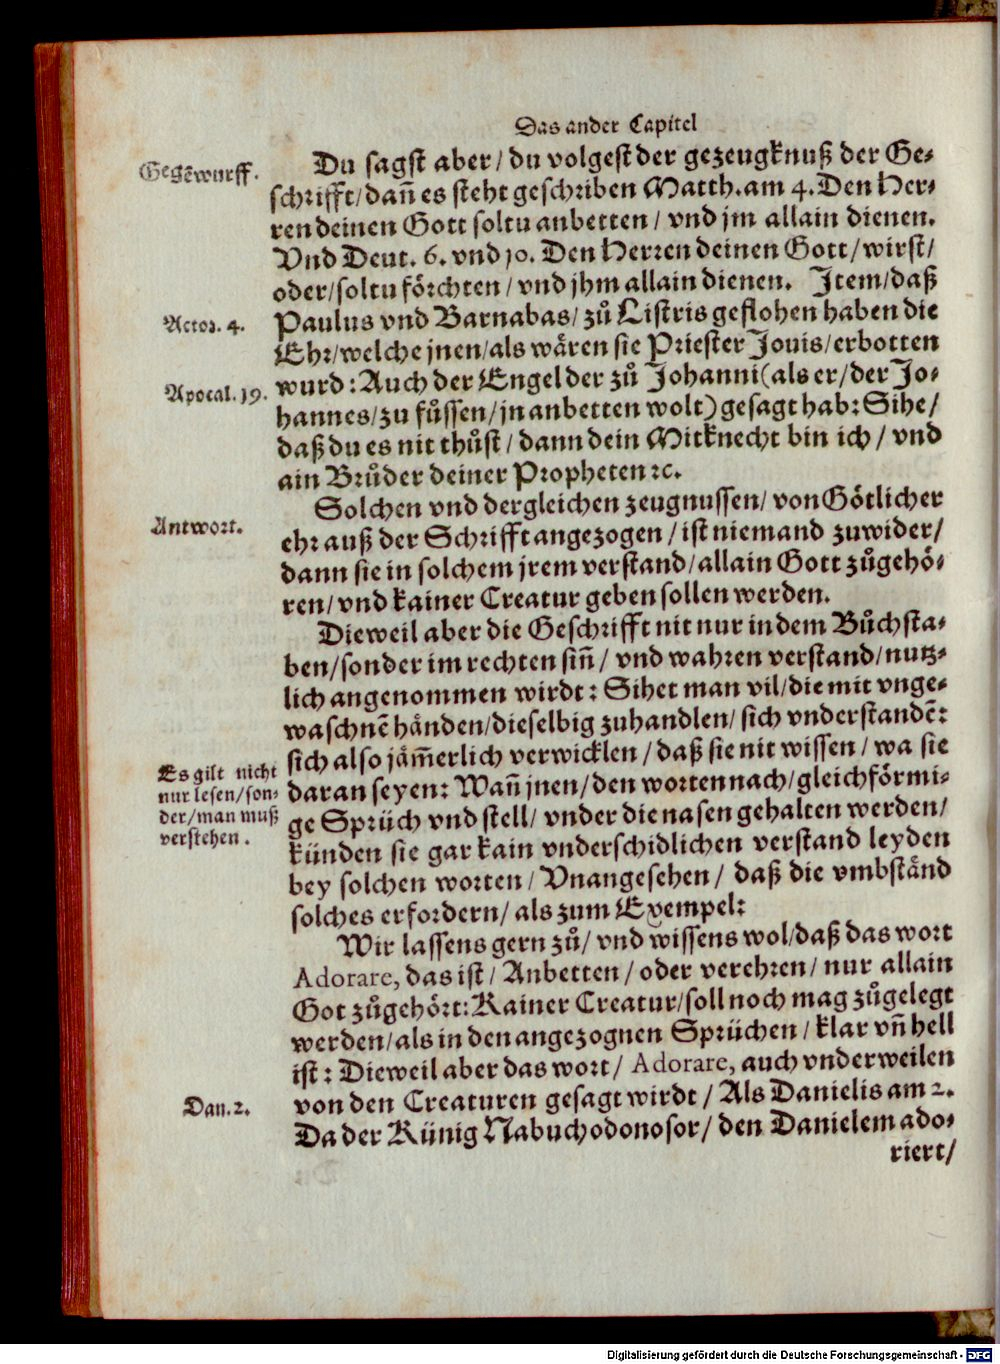 Das ander Capitel
Gegēwurff.
Du sagst aber/ du volgest der gezeugknuß der Ge-
schrifft/ dañ es steht geschriben Matth. am 4. Den Her-
ren deinen Gott soltu anbetten/ vnd jm allain dienen.
Vnd Deut. 6. vnd 10. Den Herren deinen Gott/ wirst/
oder/ soltu förchten/ vnd jhm allain dienen. Item/ daß
Actor. 4.
Paulus vnd Barnabas/ zů Listris geflohen haben die
Ehr/ welche jnen/ als wåren sie Priester Jouis/ erbotten
Apocal. 19.
wurd: Auch der Engel der zů Johanni (als er/ der Jo-
hannes/ zu fůssen/ jn anbetten wolt) gesagt hab: Sihe/
daß du es nit thůst/ dann dein Mitknecht bin ich/ vnd
ain Brůder deiner Propheten ꝛc.
Antwort.
Solchen vnd dergleichen zeugnussen/ von Götlicher
ehr auß der Schrifft angezogen/ ist niemand zuwider/
dann sie in solchem jrem verstand/ allain Gott zůgehö-
ren/ vnd kainer Creatur geben sollen werden.
Dieweil aber die Geschrifft nit nur in dem Bůchsta-
ben/ sonder im rechten siñ/ vnd wahren verstand/ nutz-
lich angenommen wirdt: Sihet man vil/ die mit vnge-
waschnē händen/ dieselbig zuhandlen/ sich vnderstandē:
sich also jäm̃erlich verwicklen/ daß sie nit wissen/ wa sie
Es gilt nicht
nur lesen/ son-
der/ man muß
verstehen.
daran seyen: Wañ jnen/ den worten nach/ gleichförmi-
ge Sprüch vnd stell/ vnder die nasen gehalten werden/
künden sie gar kain vnderschidlichen verstand leyden
bey solchen worten/ Vnangesehen/ daß die vmbständ
solches erfordern/ als zum Exempel:
Wir lassens gern zů/ vnd wissens wol/ daß das wort
Adorare, das ist/ Anbetten/ oder verehren/ nur allain
Got zůgehört: Kainer Creatur/ soll noch mag zůgelegt
werden/ als in den angezognen Sprüchen/ klar vñ hell
ist: Dieweil aber das wort/ Adorare, auch vnderweilen
Dan. 2.
von den Creaturen gesagt wirdt/ Als Danielis am 2.
Da der Künig Nabuchodonosor/ den Danielem ado-
riert/
Digitalisierung gefördert durch die Deutsche Forschungsgemeinschaft - DFG